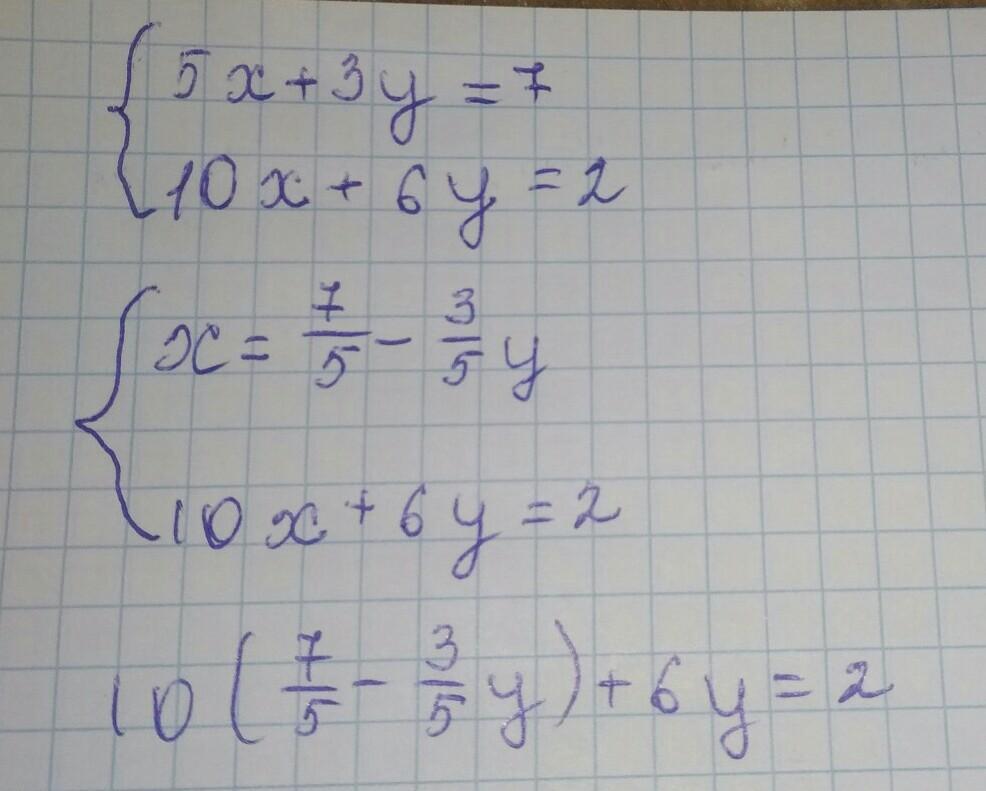 5x+3y=7
10x+6y=2
x=7/5-3/5y
10x+6y=2
10(7/5-3/5y)+6y=2